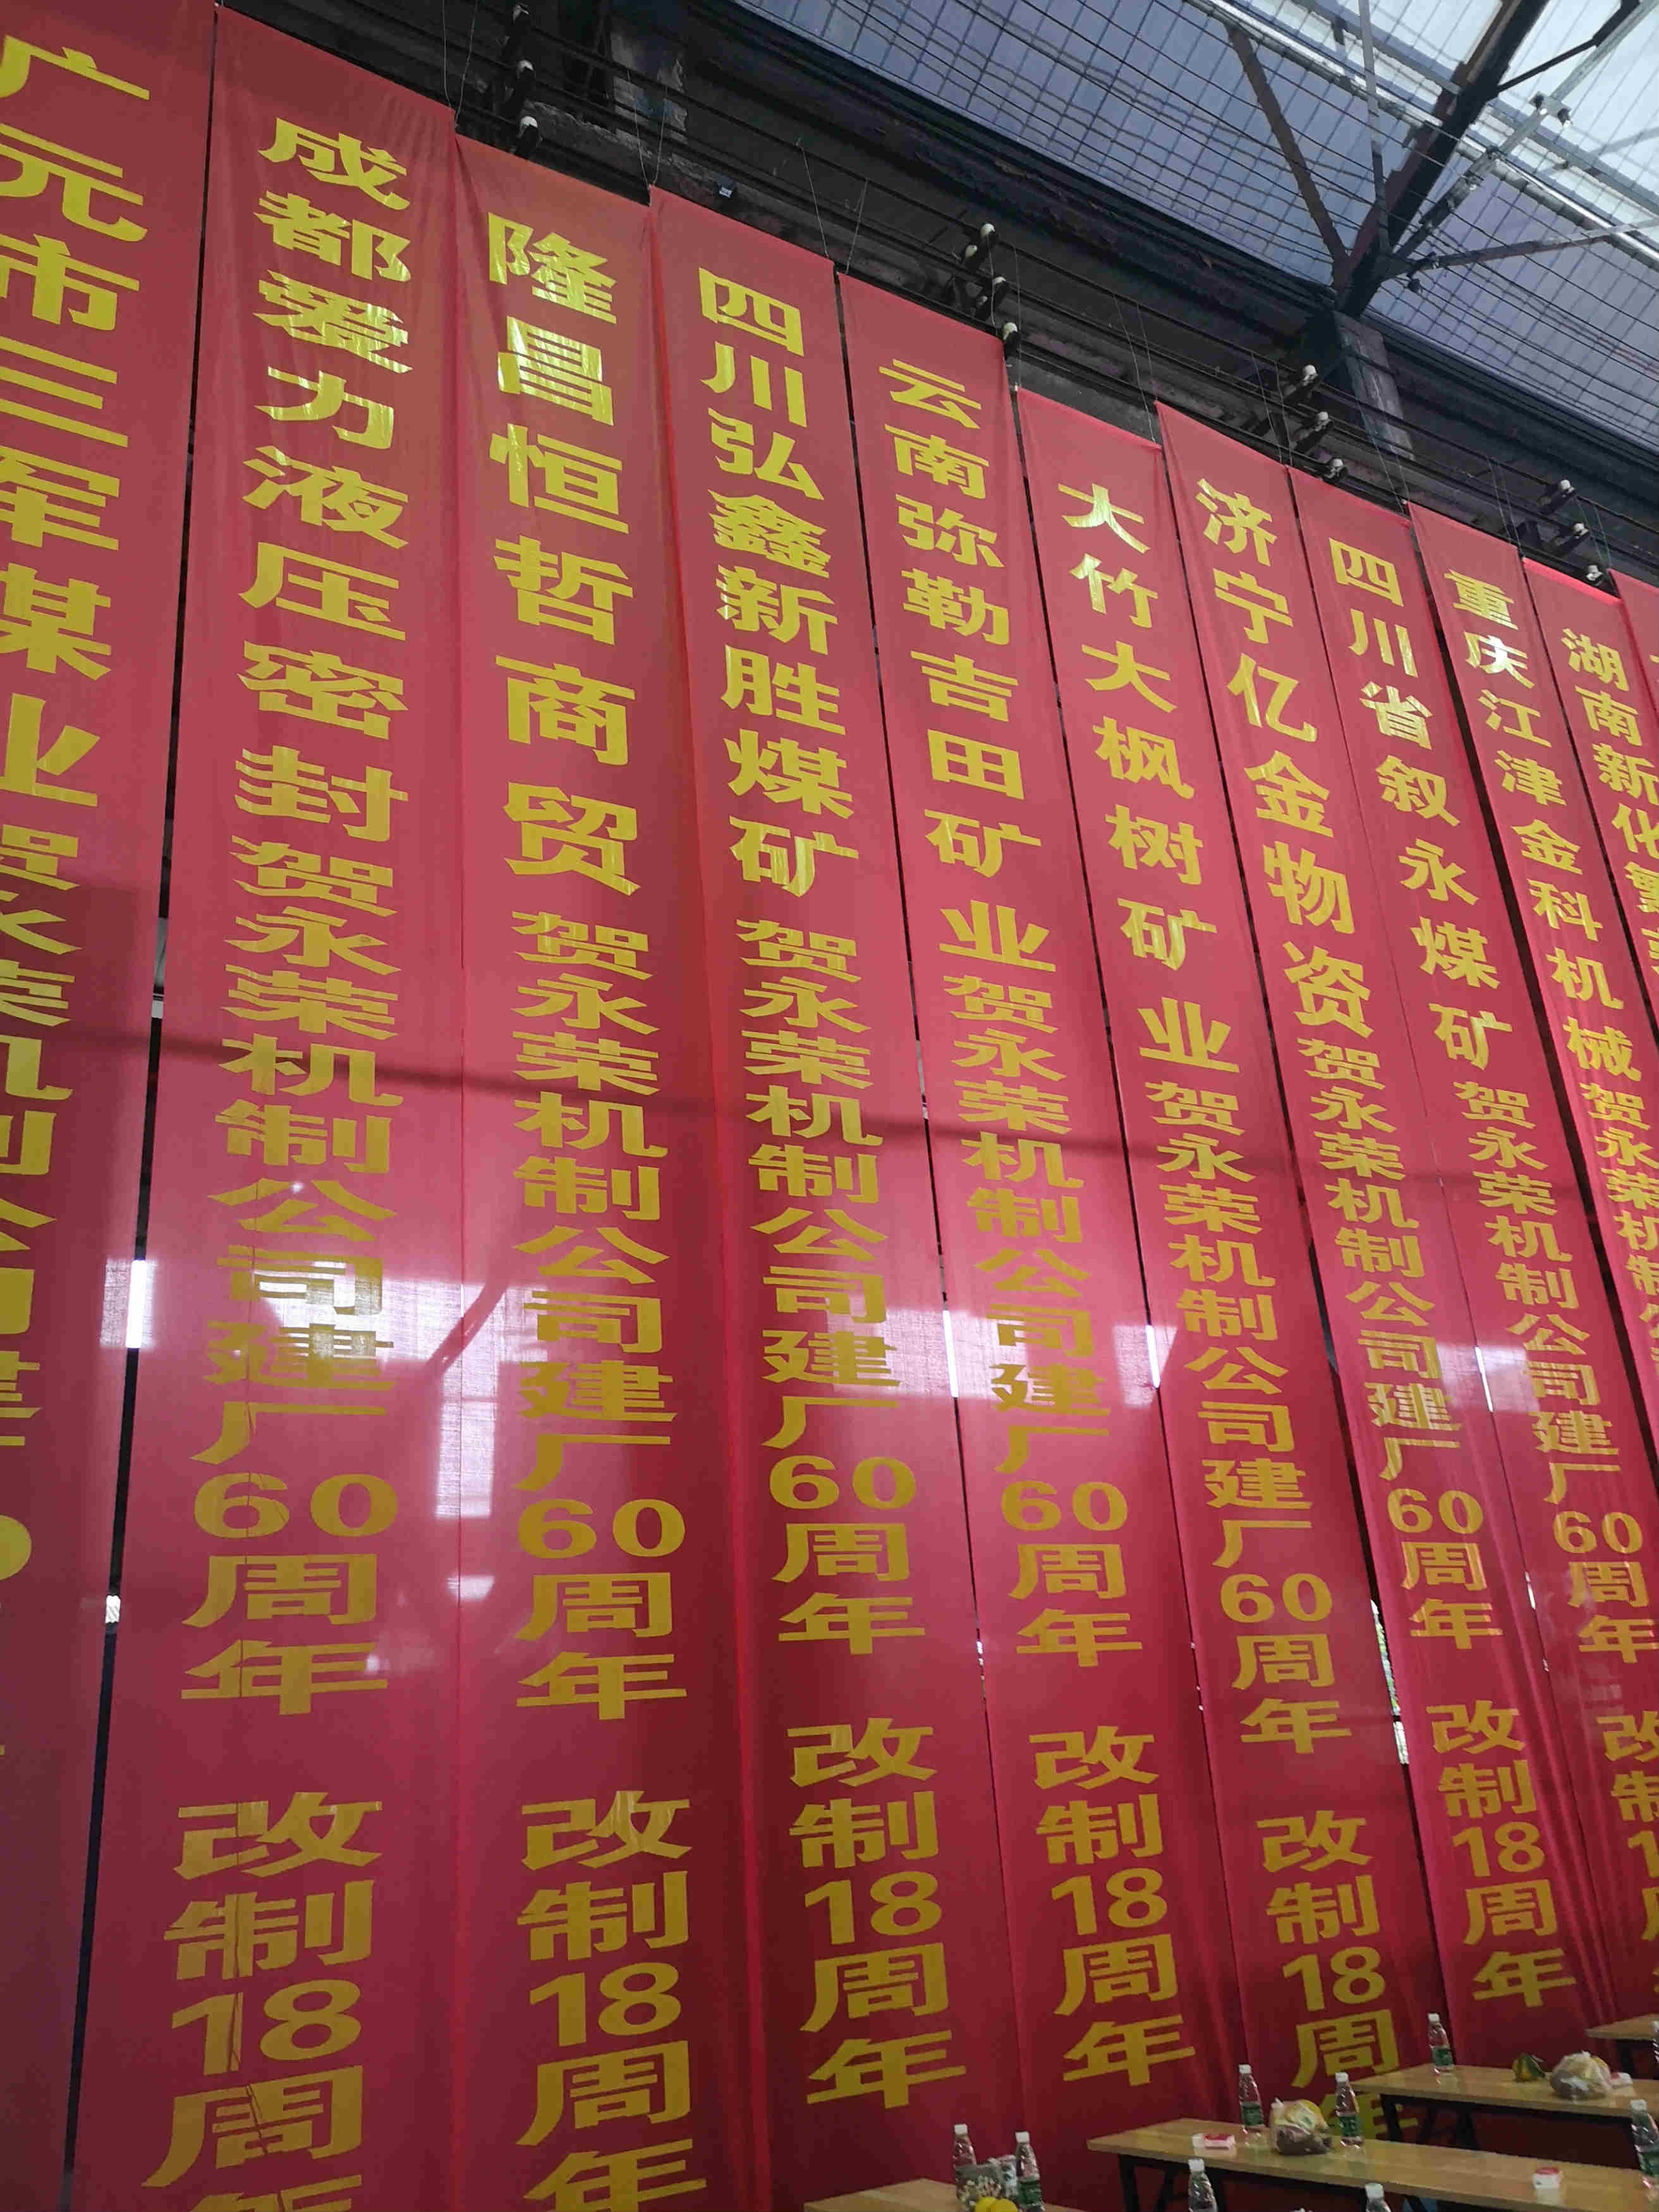 广元市三军煤业贺永荣机制公司建
成都爱力液压密封贺永荣机制公司建厂60周年 改制18周年
隆昌恒哲商贸贺永荣机制公司建厂60周年 改制18周年
四川弘鑫新胜煤矿贺永荣机制公司建厂60周年 改制18周年
云南弥勒吉田矿业贺永荣机制公司建厂60周年 改制18周年
大竹大枫树矿业贺永荣机制公司建厂60周年 改制18周年
济宁亿金物资贺永荣机制公司建厂60周年 改制18周年
四川省叙永煤矿贺永荣机制公司建厂60周年 改制1
重庆江津金科机械贺永荣机制
湖南新化